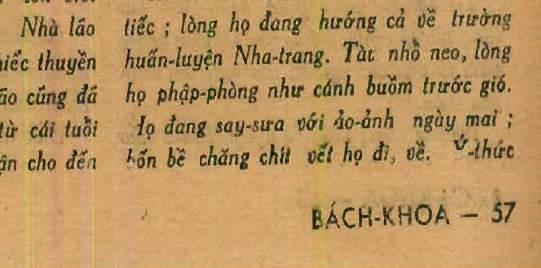 Nhà lão
iếc thuyền
ão cũng đã
từ cái tuổi
ận cho đến
tiếc ; lòng họ đang hướng cả về trường
huấn-luyện Nha-trang. Tàu nhổ neo, lòng
họ phập-phòng như cánh buồm trước gió.
Họ đang say-sưa với ảo-ảnh ngày mai ;
bốn bề chăng chít vết họ đi, về. Ý-thức
BÁCH-KHOA — 57